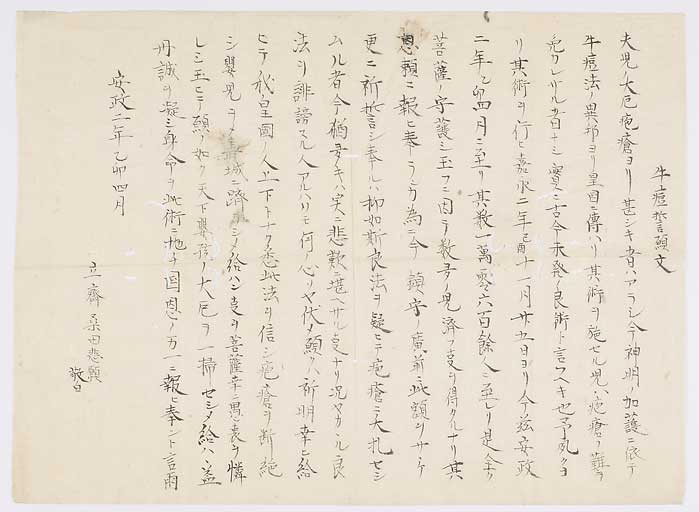 牛痘誓願文
夫児ノ大厄疱瘡ヨリ甚シキ者ハアラシ今神明ノ加護ニ依テ
牛痘法ヲ異邦ヨリ皇国ニ傳ハリ其術ヲ施セル児ハ疱瘡ノ難ヲ
免カレサル者ナシ實ニ古今未発ノ良術ト言フヘキ也予夙クヨ
リ其術ヲ行ヒ嘉永二年己酉十一月廿五日ヨリ今茲安政
二年乙卯四月ニ至リ其数一萬零六百餘人ニ至レリ是全ク
菩薩ノ守護シ玉フニ因テ数多ノ児済フ叓ヲ得タルナリ其
恩頼ニ報ヒ奉ラン為ニ今鎮守ノ廣前此額ヲサヽケ
更ニ祈誓シ奉ルハ抑如斯良法ヲ疑ヒテ疱瘡ニ夭札セシ
ムル者今猶多キハ実ニ悲歎ニ堪ヘサル叓ナリ況ヤカヽル良
法ヲ誹謗スル人アルハソモ何ノ心ソヤ伏メ願クハ祈明幸ヒ給
ヒテ我皇國ノ人上下トナク悉此法ヲ信シ疱瘡ヲ断絶
シ嬰児ヲメ壽域ニ躋ラシメ給ハン叓ヲ菩薩幸ニ愚衷ヲ憐
レミ玉ヒテ願ノ如ク天下嬰孩ノ大厄ヲ一掃セシメ給ハヽ益
丹誠ヲ凝シ身命ヲ此術ニ抛チ国恩ノ万一ニ報ヒ奉ント言爾
安政二年乙卯四月
立齋桑田 敬白